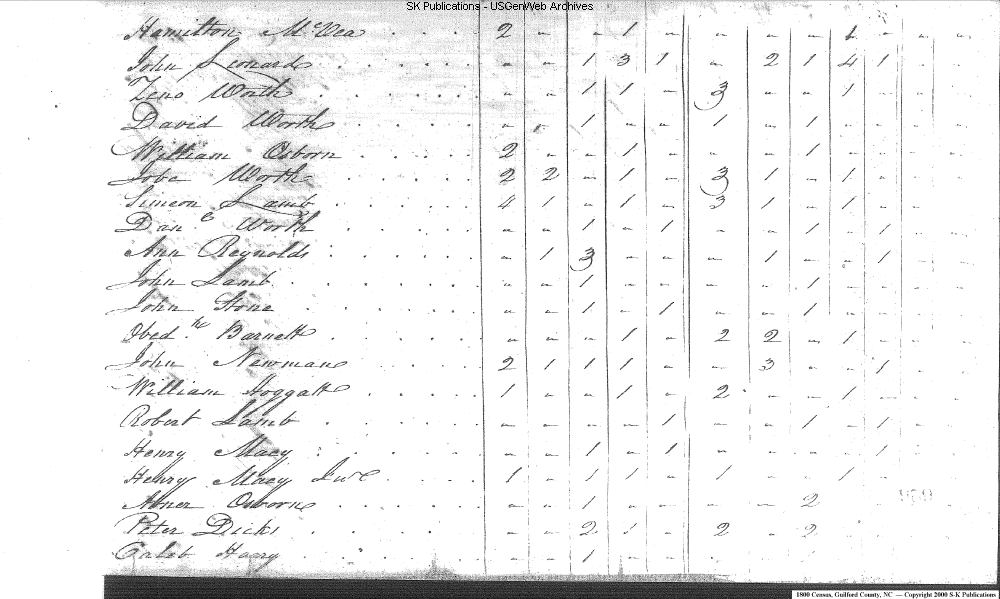 SK Publications - USGenWeb Archives
Hamilton McVea . . . 2 - - 1 - - - - 1 - - -
John Leonard . . . . . - - 1 3 1 - 2 1 4 1 . .
Zeno Worth . . . . . - - 1 1 - 3 - - 1 - - .
David Worth . . . . - - 1 - - 1 - 1 - - .
William Osborn . . . . . 2 - - 1 - - - 1 - - .
Jobe Worth . . . . . 2 2 - 1 - 3 1 - 1 - . .
Simeon Lamb . . . . . 4 1 - 1 - 3 1 - 1 - -
Dan Worth . . . . . - - 1 - 1 - - 1 - 1 .
Ann Reynolds . . . . . - 1 3 - - - 1 - - 1 .
John Lamb . . . . . - - 1 - - - - 1 - - .
John Stone . . . . . - - 1 - 1 - - 1 - - .
Obed Barnett . . . . . - - - 1 - 2 2 - 1 - .
John Newman . . . . . 2 1 1 1 - - 3 - - 1 .
William Hoggatt . . . . . 1 - - 1 - 2 - - 1 - .
Robert Lamb . . . . . - - - - 1 - - 1 - 1 .
Henry Macy . . . . . - - 1 - 1 - - - - 1 .
Henry Macy . . . 1 - 1 1 - 1 - - 1 - .
Abner Osborn . . . . . - - 1 - - - - 2 - -
Peter Dicks . . . . . - - 2 1 - 2 - 2 - - .
Caleb . . . . . - - 1 - - - - 1 - - .
1800 Census, Guilford County, NC — Copyright 2000 S-K Publications